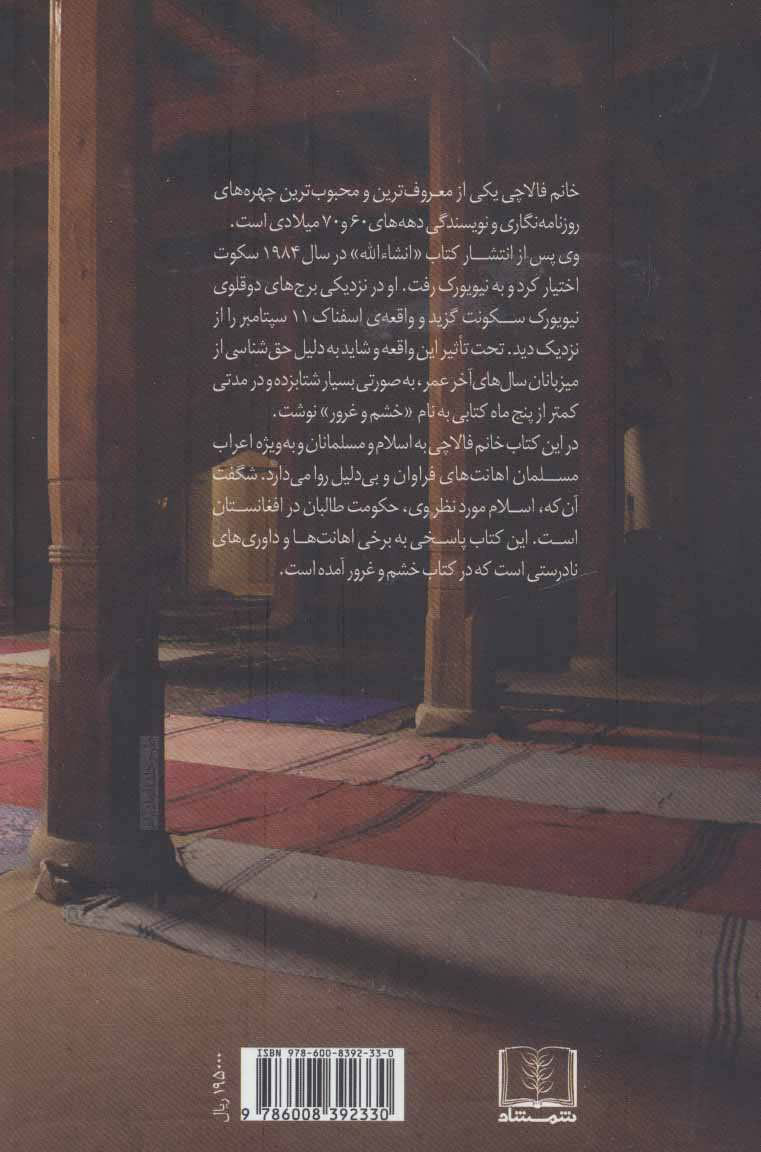 خانم فالاچی یکی از معروف‌ترین و محبوب‌ترین چهره‌های
روزنامه‌نگاری و نویسندگی دهه‌های ۶۰ و ۷۰ میلادی است.
وی پس از انتشار کتاب «انشاءالله» در سال ۱۹۸۴ سکوت
اختیار کرد و به نیویورک رفت. او در نزدیکی برج‌های دوقلوی
نیویورک سکونت گزید و واقعه‌ی اسفناک ۱۱ سپتامبر را از
نزدیک دید. تحت تأثیر این واقعه و شاید به دلیل حق‌شناسی از
میزبانان سال‌های آخر عمر، به صورتی بسیار شتابزده و در مدتی
کمتر از پنج ماه کتابی به نام «خشم و غرور» نوشت.
در این کتاب خانم فالاچی به اسلام و مسلمانان و به‌ویژه اعراب
مسلمان اهانت‌های فراوان و بی‌دلیل روا می‌دارد. شگفت
آن که، اسلام مورد نظر وی، حکومت طالبان در افغانستان
است. این کتاب پاسخی به برخی اهانت‌ها و داوری‌های
نادرستی است که در کتاب خشم و غرور آمده است.
۱۹۵۰۰۰ ریال
ISBN 978-600-8392-33-0
9 786008 392330
شمشاد